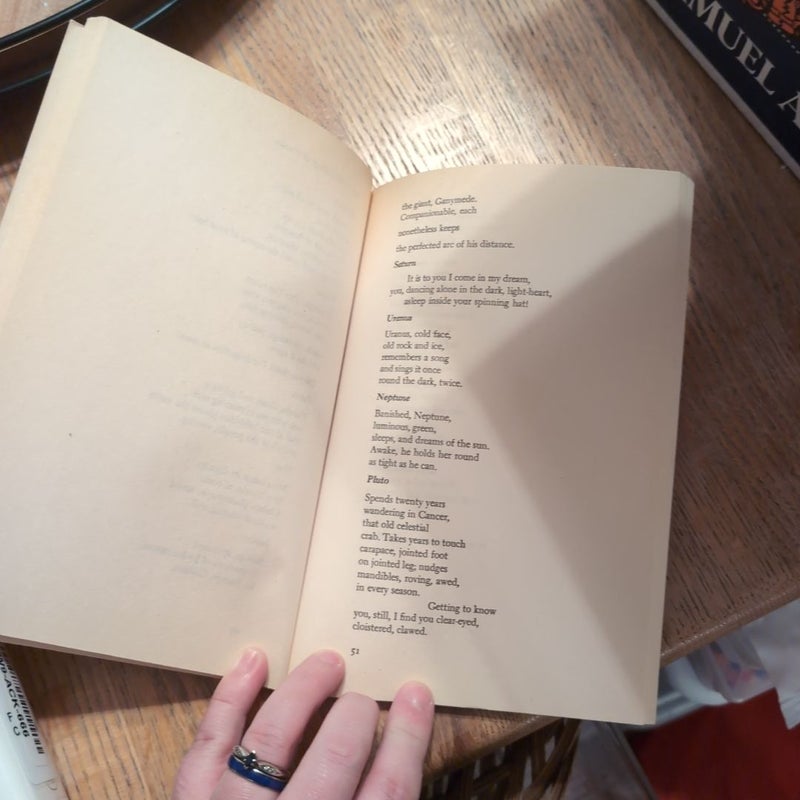 MUEL A
the giant, Ganymede.
Companionable, each
nonetheless keeps
the perfected arc of his distance.
Saturn
It is to you I come in my dream,
you, dancing alone in the dark, light-heart,
asleep inside your spinning hat!
Uranus
Uranus, cold face,
old rock and ice,
remembers a song
and sings it once
round the dark, twice.
Neptune
Banished, Neptune,
luminous, green,
sleeps, and dreams of the sun.
Awake, he holds her round
as tight as he can.
Pluto
Spends twenty years
wandering in Cancer,
that old celestial
crab. Takes years to touch
carapace, jointed foot
on jointed leg; nudges
mandibles, roving, awed,
in every season.
Getting to know
you, still, I find you clear-eyed,
cloistered, clawed.
51
ACK-666